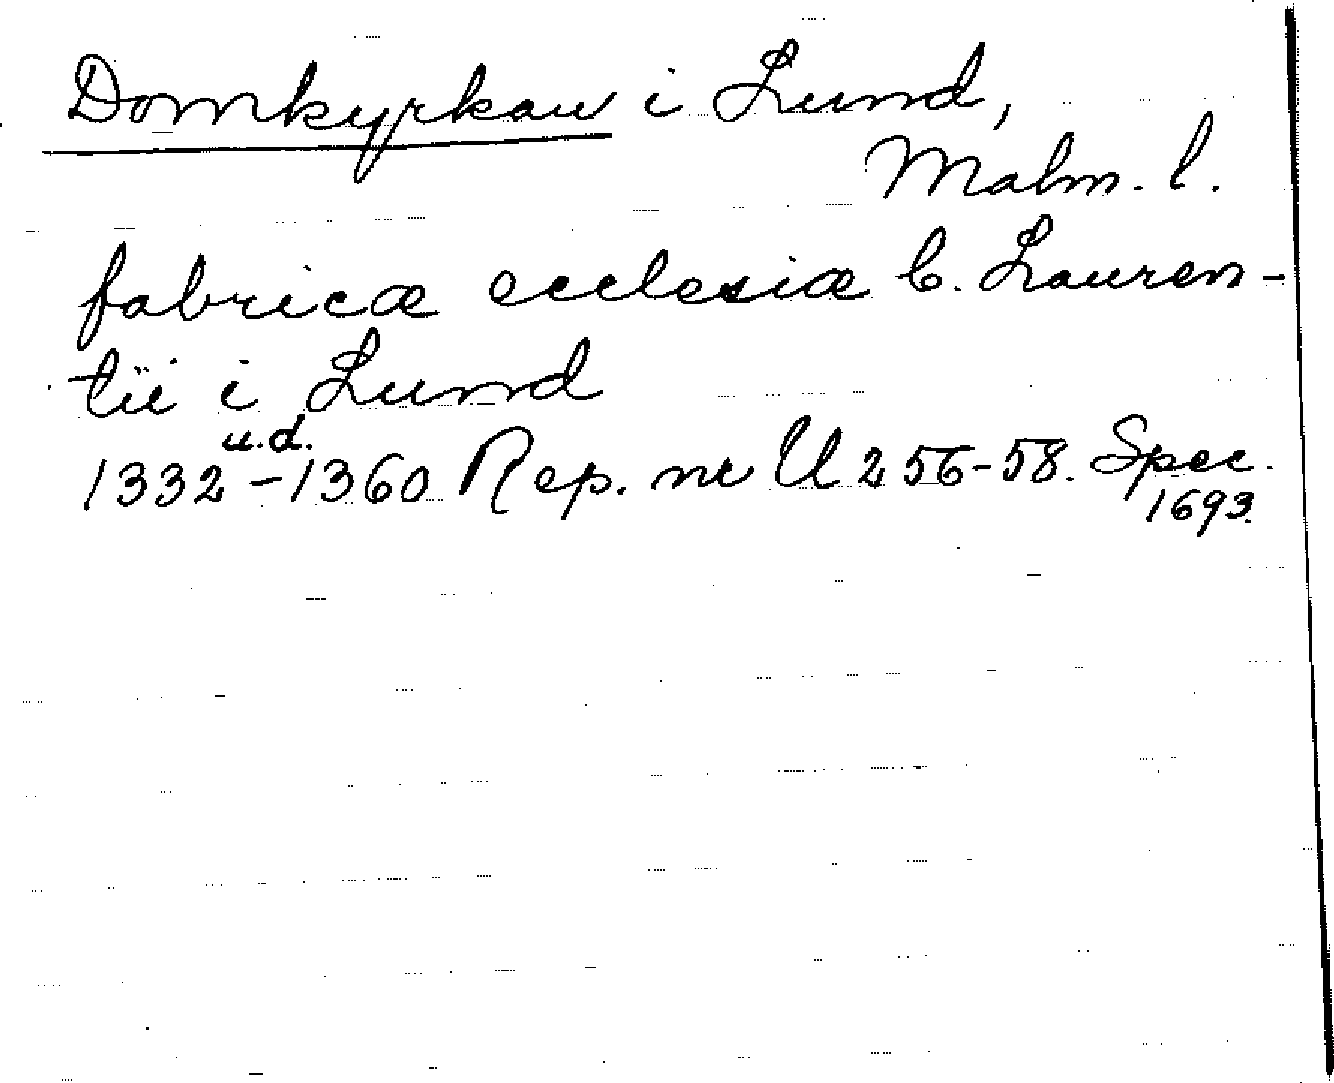 Domkyrkan i Lund,
Malm. l.
fabricæ ecclesiæ b. Lauren-
tii i Lund
u.d.
1332-1360 Rep. nr U 256-58. Spec.
1693.